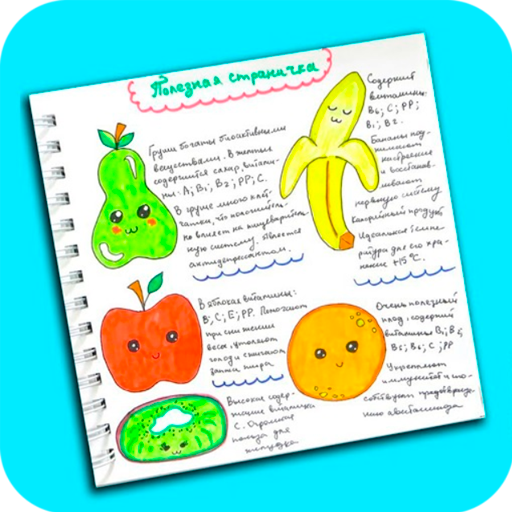 Полезная страничка
Груши богаты биоактивными
веществами. В мякоти
содержится сахар, витами-
ны: А; В₁; В₂; РР; С.
В груше много клет-
чатки, что положитель-
но влияет на пищеваритель-
ную систему. Является
антидепрессантом.
Содержит
витамины:
В₆; С; РР;
В₁; В2.
Бананы под-
нимают
настроение
и восстанав-
ливают
нервную систему
Калорийный продукт
Идеальная темпе-
ратура для его хра-
нения +15°С.
В яблоках витамины:
В; С; Е; РР. Помогают
при снижении
веса, утоляют
голод и сжигают
запасы жира.
Очень полезный
плод, содержит
витамины В₁; В₂;
В₅; В₆; С; РР
Укрепляют
иммунитет и спо-
собствуют предотвраще-
нию авитаминоза
Высокое содер-
жание витамина
С. Огромная
польза для
желудка